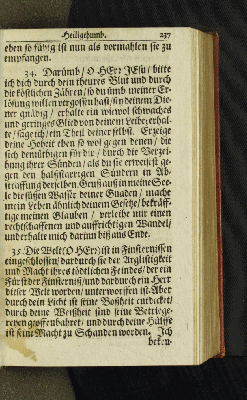 Heiligthumb. 237
eben so fähig ist nun als vormahlen sie zu
empfangen.
34. Darümb / O HErr JEsu / bitte
ich dich durch dein theures Blut und durch
die köstlichen Zähren / so du ümb meiner Er-
lösung willen vergossen hast / sey deinem Die-
ner gnädig / erhalte ein wiewol schwaches
und geringes Glied von deinem Leibe / erhal-
te / sage ich / ein Theil deiner selbst. Erzeige
deine Hoheit eben so wol gegen denen / die
sich demütbigen für dir / durch die Verzei-
hung ihrer Sünden / als du sie erweisest ge-
gen den halsstarrigen Sündern in Ab-
straffung derselben. Geuß auß in meine See-
le die süssen Wasser deiner Gnaden / mache
mein Leben ähnlich deinem Gesetze / bekräff-
tige meinen Glauben / verleihe mir einen
rechtschaffenen und auffrichtigen Wandel /
und erhalte mich darinn biß ans Ende.
35. Die Welt (O HErr) ist in Finsternissen
eingeschlossen / dardurch sie der Arglistigkeit
und Macht ihres tödtlichen Feindes / der ein
Fürst der Finsternuß / und dardurch ein Herr
dieser Welt worden / unterworffen ist. Aber
durch dein Licht ist seine Boßheit entdecket /
durch deine Weißheit sind seine Betriege-
reyen geoffenbahret / und durch deine Hülffe
ist seine Macht zu Schanden worden. Ich
beken-